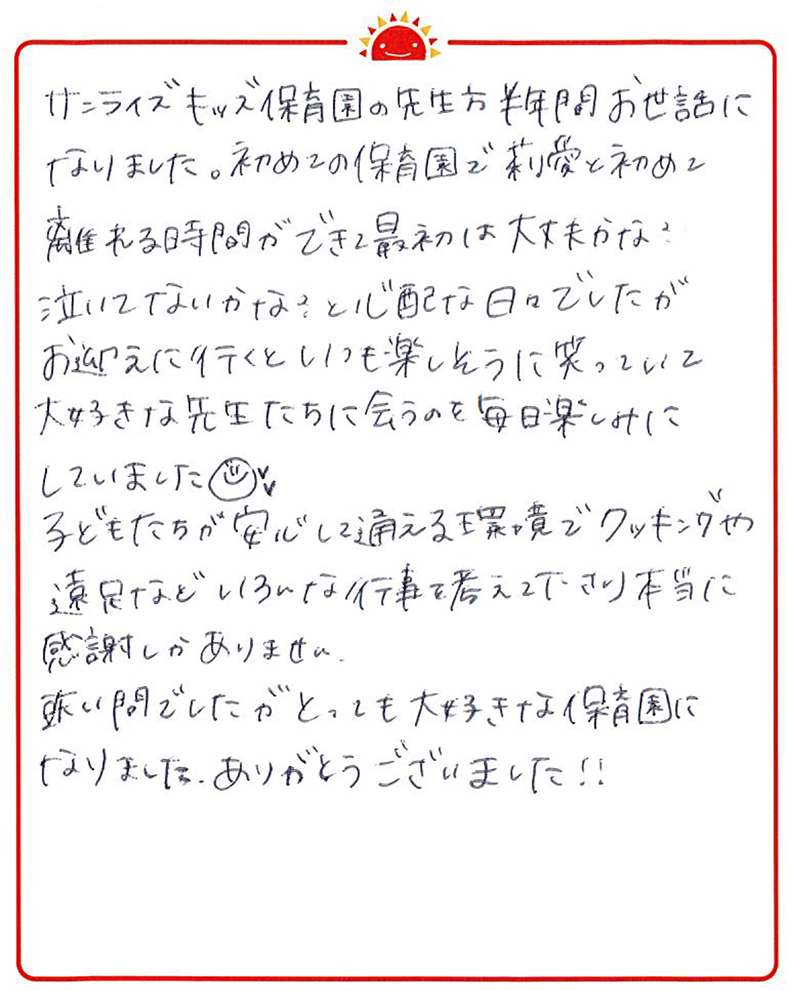 サンライズキッズ保育園の先生方半年間お世話に
なりました。初めての保育園で莉愛と初めて
離れる時間ができて最初は大丈夫かな?
泣いてないかな?と心配な日々でしたが
お迎えに行くといつも楽しそうに笑っていて
大好きな先生たちに会うのを毎日楽しみに
していました
子どもたちが安心して通える環境でクッキングや
遠足などいろんな行事を考えて下さり本当に
感謝しかありません.
短い間でしたがとっても大好きな保育園に
なりました.ありがとうございました!!